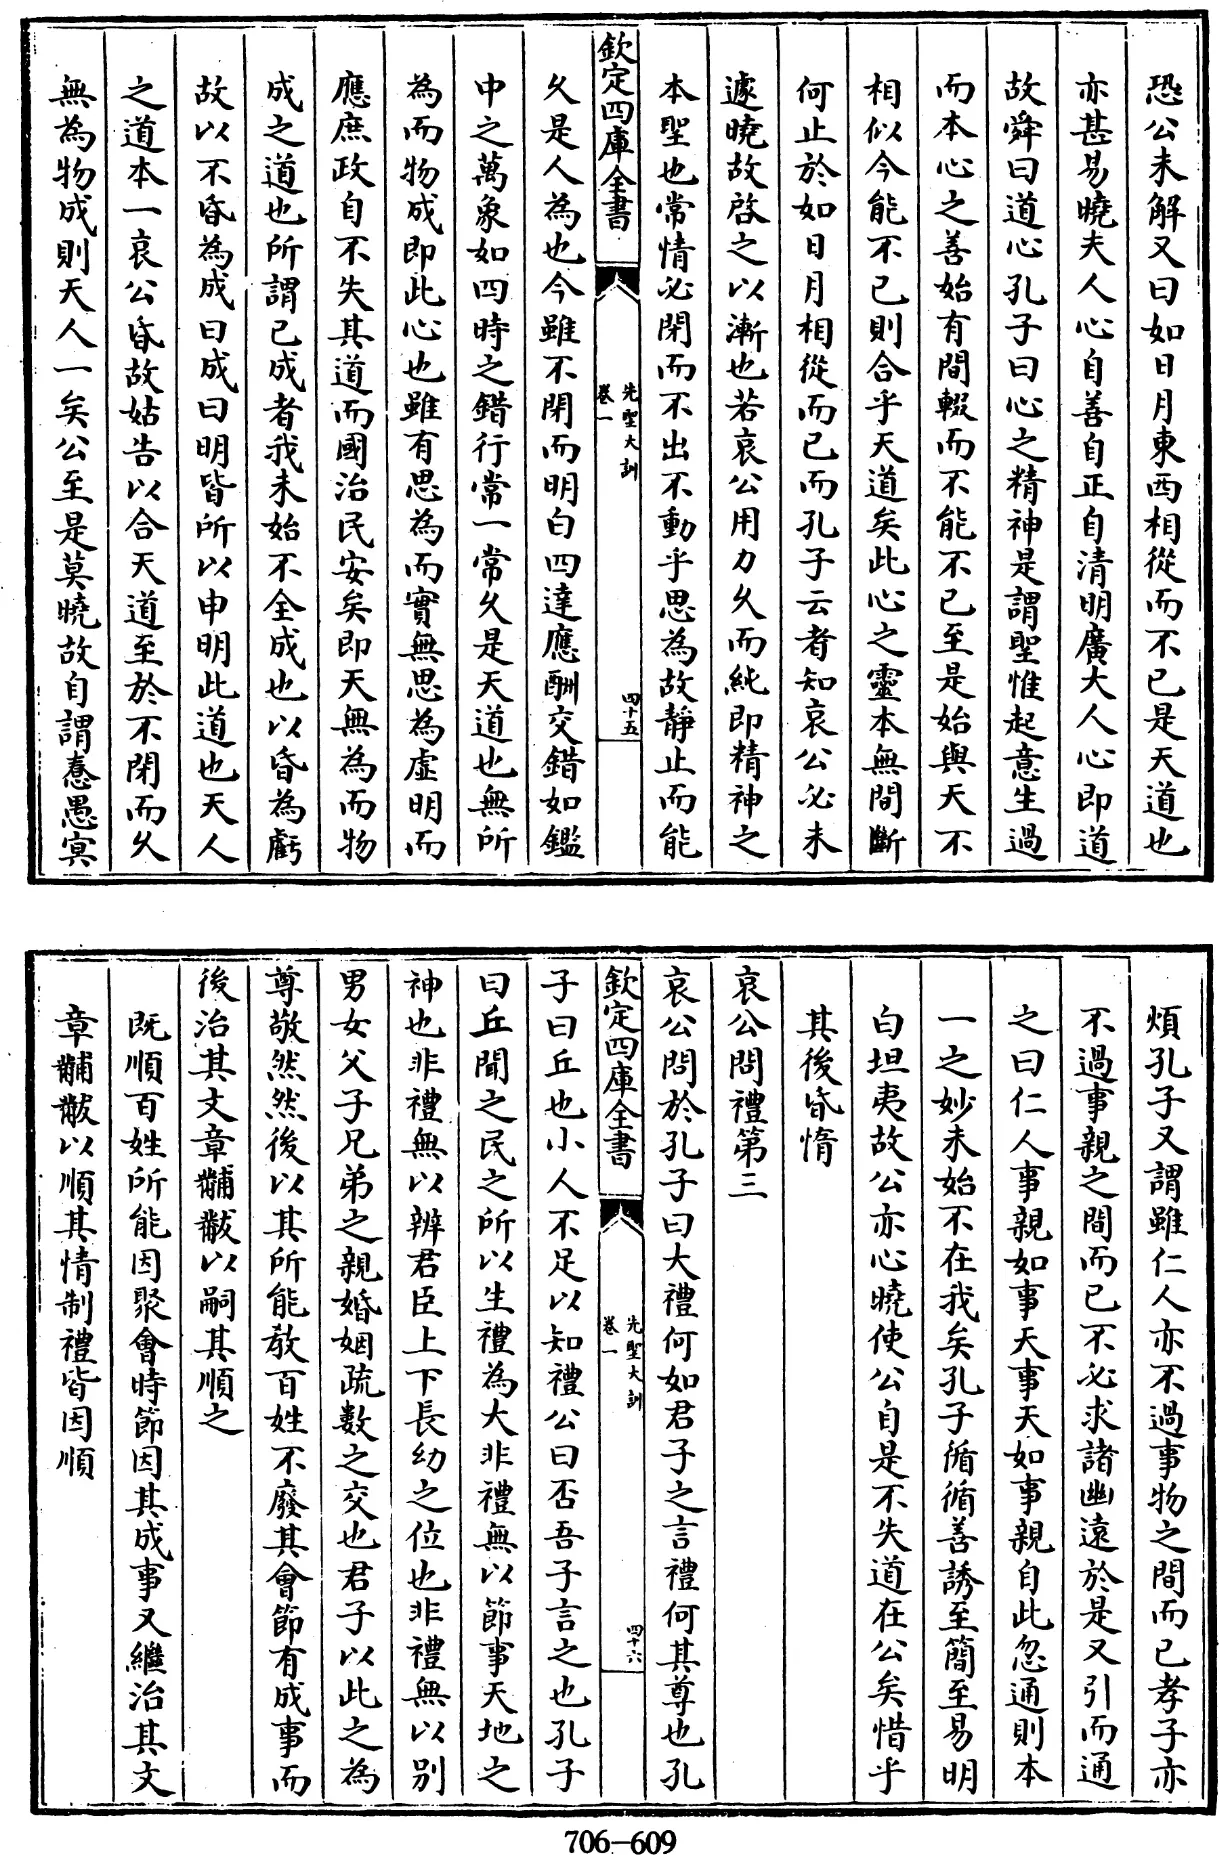 恐公未解又曰如日月東西相從而不已是天道也
亦甚易曉夫人心自善自正自清明廣大人心即道
故舜曰道心孔子曰心之精神是謂聖惟起意生過
而本心之善始有間輟而不能不已至是始與天不
相似今能不已則合乎天道矣此心之靈本無間斷
何止於如日月相從而已而孔子云者知哀公必未
遽曉故啓之以漸也若哀公用力久而純即精神之
本聖也常情必閉而不出不動乎思為故靜止而能
欽定四庫全書
先聖大訓
卷一
四十五
久是人為也今雖不閉而明白四達應酬交錯如鑑
中之萬象如四時之錯行常一常久是天道也無所
為而物成即此心也雖有思為而實無思為虛明而
應庶政自不失其道而國治民安矣即天無為而物
成之道也所謂已成者我未始不全成也以昏為虧
故以不昏為成曰成曰明皆所以申明此道也天人
之道本一哀公昏故姑告以合天道至於不閉而久
無為物成則天人一矣公至是莫曉故自謂憃愚冥
煩孔子又謂雖仁人亦不過事物之間而已孝子亦
不過事親之間而已不必求諸幽遠於是又引而通
之曰仁人事親如事天事天如事親自此忽通則本
一之妙未始不在我矣孔子循循善誘至簡至易明
白坦夷故公亦心曉使公自是不失道在公矣惜乎
其後昏惰
哀公問禮第三
哀公問於孔子曰大禮何如君子之言禮何其尊也孔
欽定四庫全書
先聖大訓
卷一
四十六
子曰丘也小人不足以知禮公曰否吾子言之也孔子
曰丘聞之民之所以生禮為大非禮無以節事天地之
神也非禮無以辨君臣上下長幼之位也非禮無以別
男女父子兄弟之親婚姻疏數之交也君子以此之為
尊敬然然後以其所能教百姓不廢其會節有成事而
後治其文章黼黻以嗣其順之
既順百姓所能因聚會時節因其成事又繼治其文
章黼黻以順其情制禮皆因順
706-609